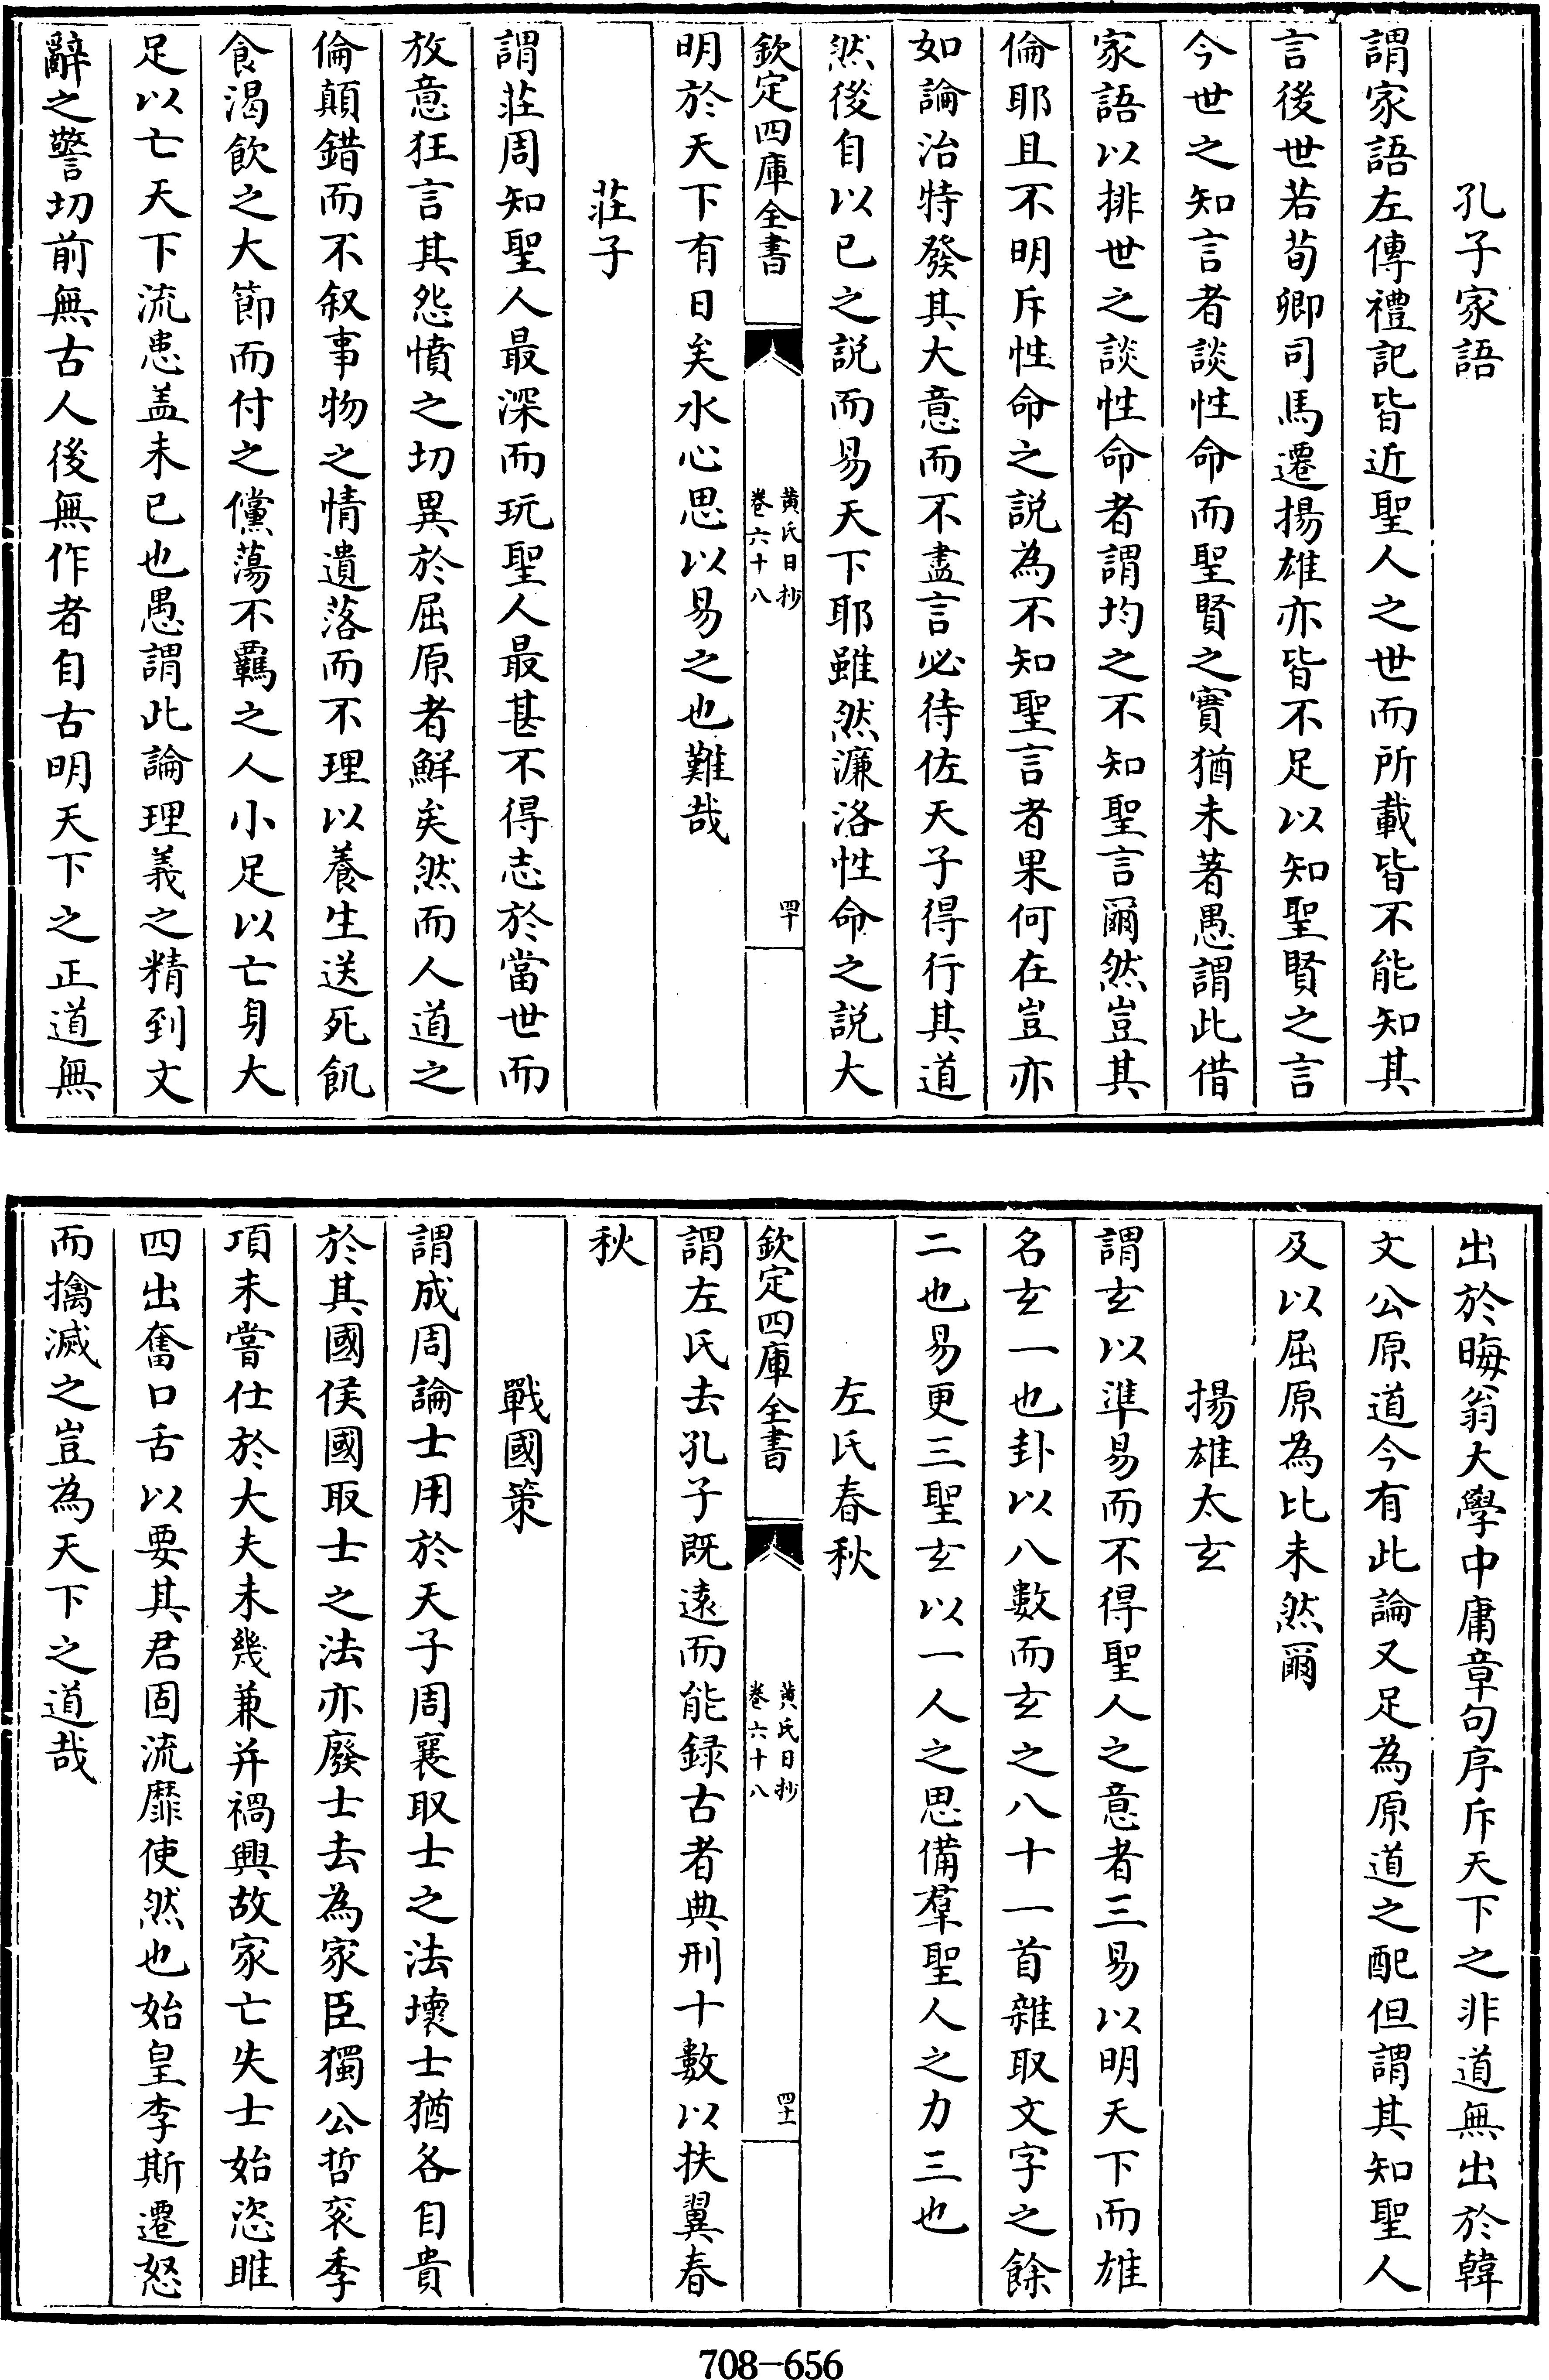 孔子家語
謂家語左傳禮記皆近聖人之世而所載皆不能知其
言後世若荀卿司馬遷揚雄亦皆不足以知聖賢之言
今世之知言者談性命而聖賢之實猶未著愚謂此借
家語以排世之談性命者謂均之不知聖言爾然豈其
倫耶且不明斥性命之説為不知聖言者果何在豈亦
如論治特發其大意而不盡言必待佐天子得行其道
然後自以已之説而易天下耶雖然濂洛性命之説大
欽定四庫全書
黄氏日抄
卷六十八
四十
明於天下有日矣水心思以易之也難哉
莊子
謂莊周知聖人最深而玩聖人最甚不得志於當世而
放意狂言其怨憤之切異於屈原者鮮矣然而人道之
倫顛錯而不叙事物之情遺落而不理以養生送死飢
食渴飲之大節而付之儻蕩不羈之人小足以亡身大
足以亡天下流患盖未已也愚謂此論理義之精到文
辭之警切前無古人後無作者自古明天下之正道無
出於晦翁大學中庸章句序斥天下之非道無出於韓
文公原道今有此論又足為原道之配但謂其知聖人
及以屈原為比未然爾
揚雄太玄
謂玄以準易而不得聖人之意者三易以明天下而雄
名玄一也卦以八數而玄之八十一首雜取文字之餘
二也易更三聖玄以一人之思備羣聖人之力三也
左氏春秋
欽定四庫全書
黄氏日抄
卷六十八
四十一
謂左氏去孔子既遠而能録古者典刑十數以扶翼春
秋
戰國策
謂成周論士用於天子周襄取士之法壞士猶各自貴
於其國侯國取士之法亦廢士去為家臣獨公晳哀季
項未嘗仕於大夫未幾兼并禍興故家亡失士始恣睢
四出奮口舌以要其君固流靡使然也始皇李斯遷怒
而擒滅之豈為天下之道哉
708-656